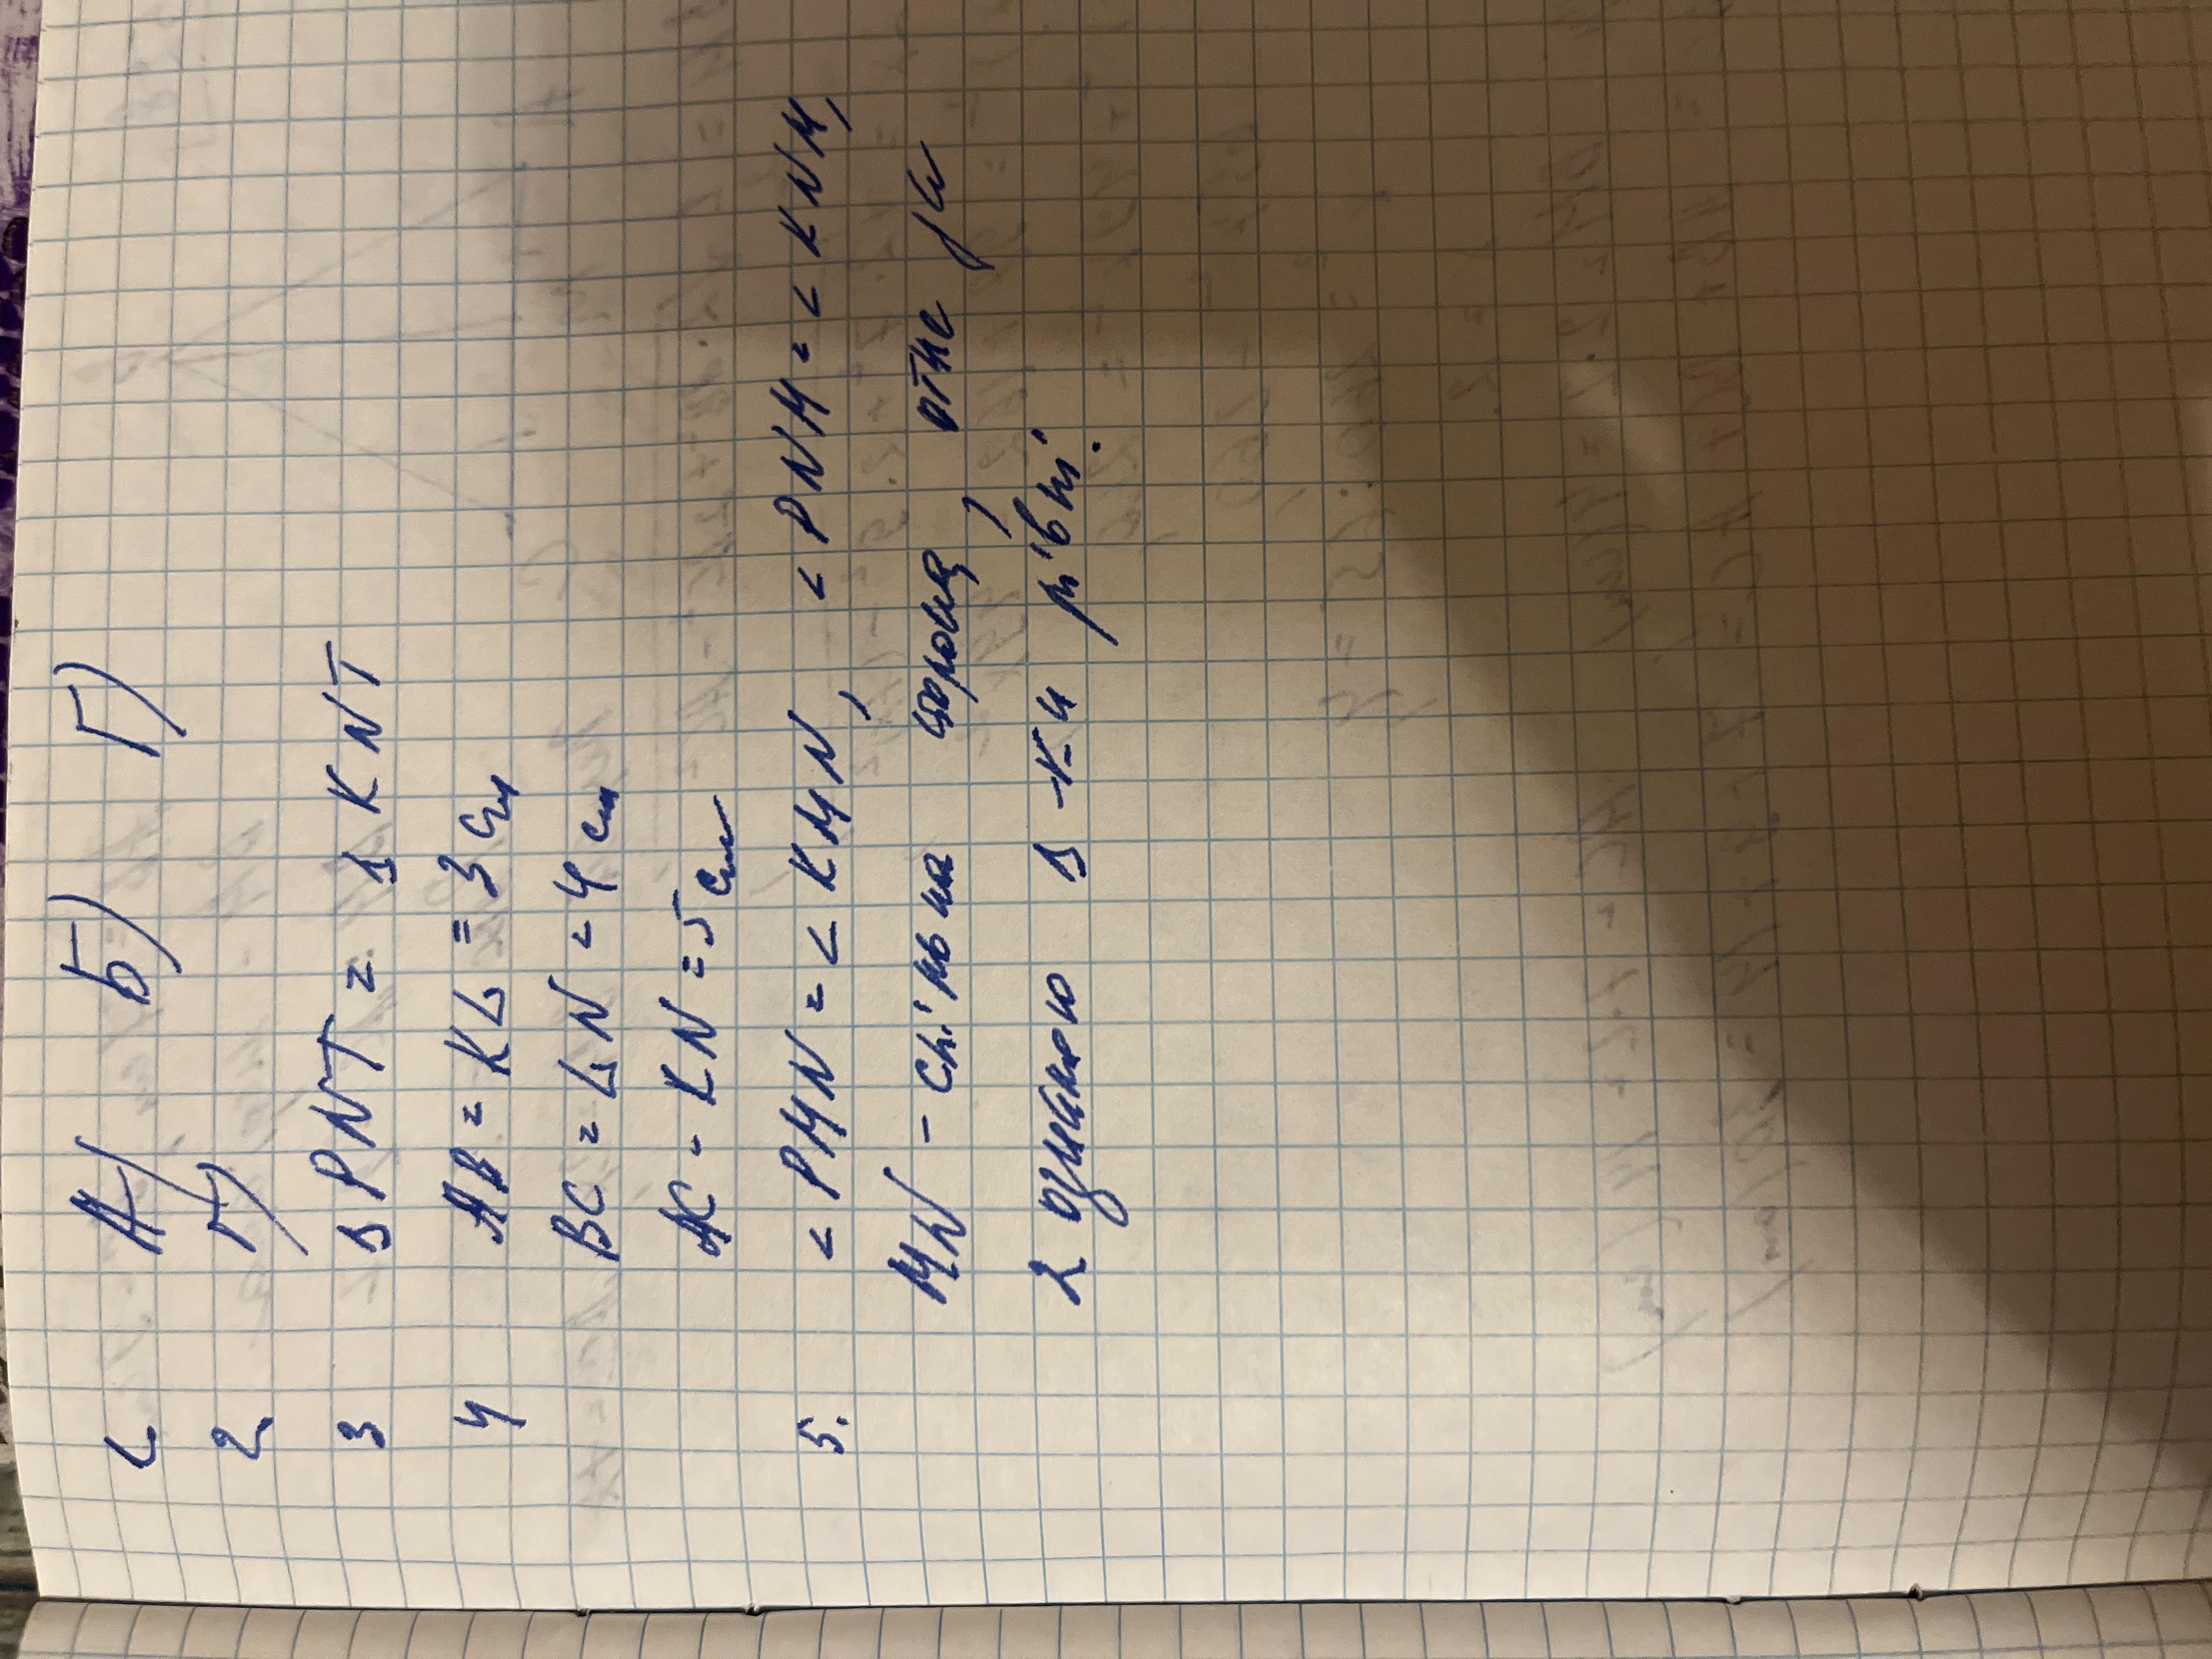 1 А) Б) Г)
2. Г)
3 Δ PNT = Δ KNT
4 AB = KL = 3 см
BC = LN = 4 см
AC = KN = 5 см
5. < PMN = < KMN, < PNM = < KNM,
MN - спільна сторона, отже за
2 ознакою Δ-ки рівні.